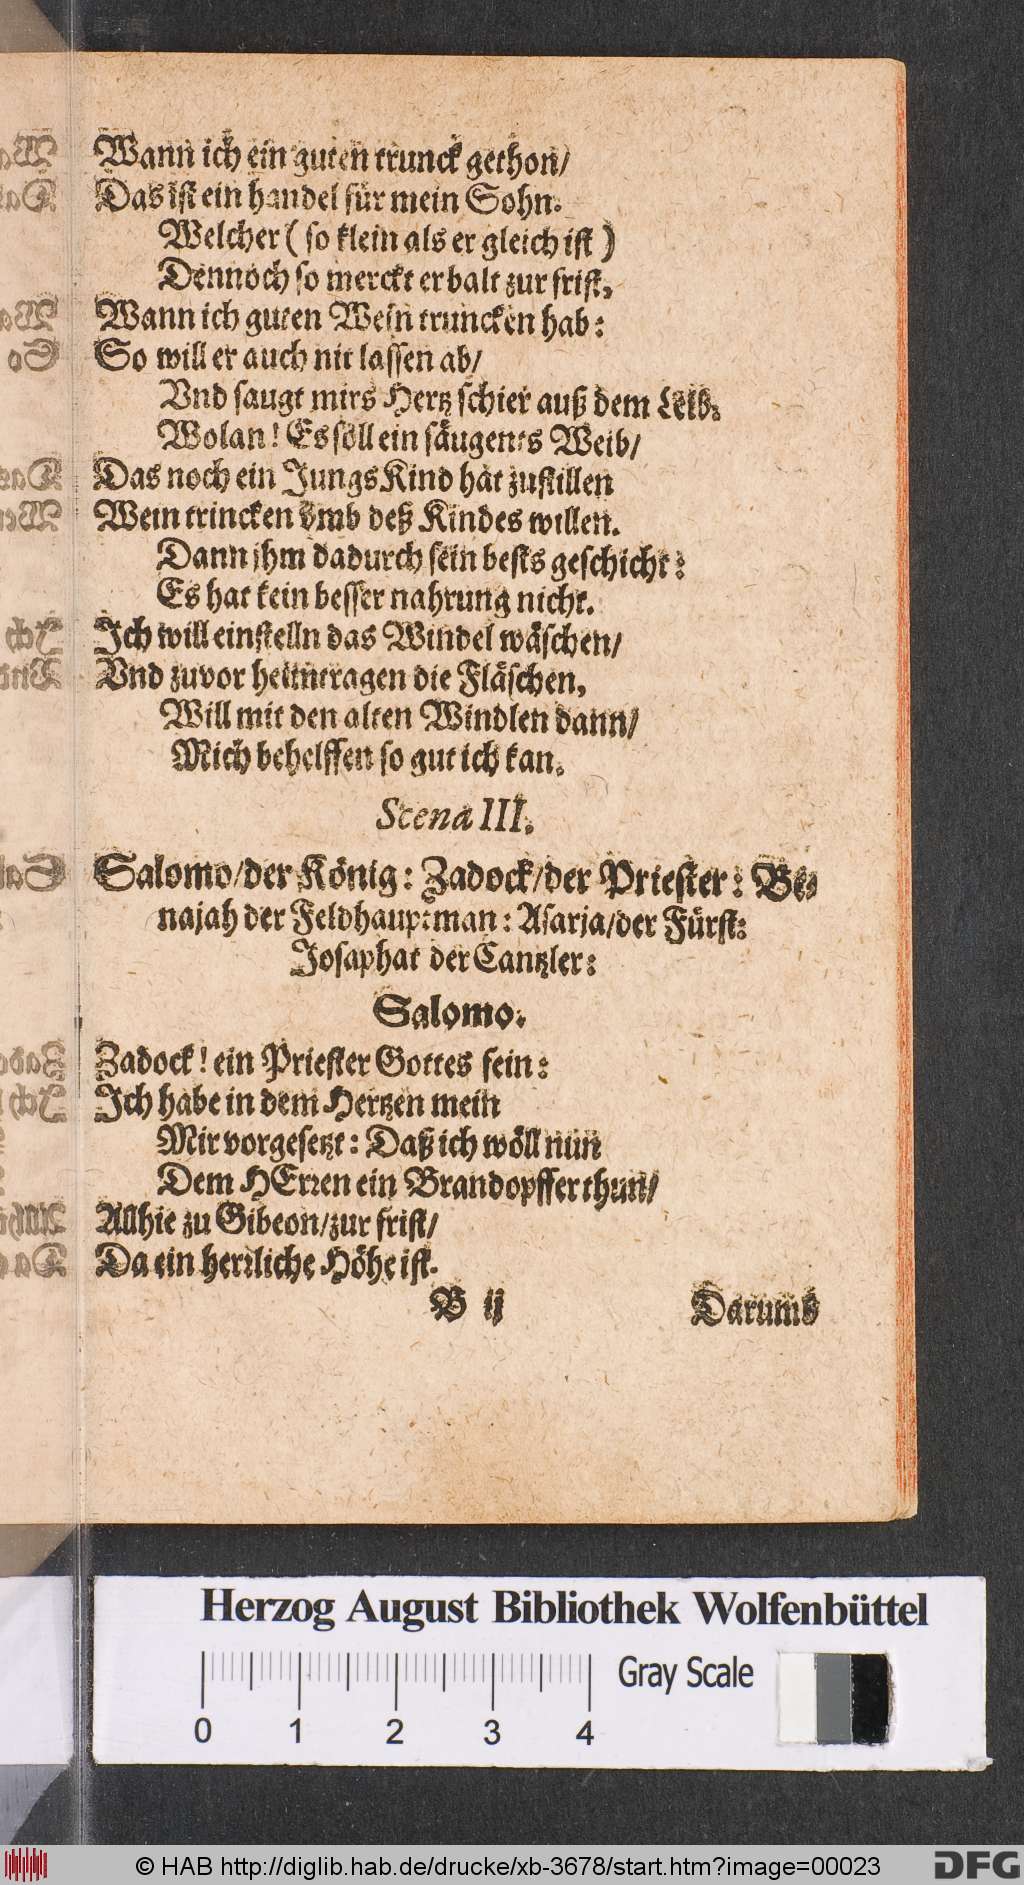 Wann ich ein guten trunck gethon/
Das ist ein handel für mein Sohn.
Welcher ( so klein als er gleich ist )
Dennoch so merckt er balt zur frist,
Wann ich guten Wein truncken hab:
So will er auch nit lassen ab/
Vnd saugt mirs Hertz schier auß dem Leib.
Wolan! Es soll ein säugents Weib/
Das noch ein Jungs Kind hat zustillen
Wein trincken vmb deß Kindes willen.
Dann jhm dadurch sein bests geschicht:
Es hat kein besser nahrung nicht.
Ich will einstelln das Windel wäschen/
Vnd zuvor heimtragen die Fläschen,
Will mit den alten Windlen dann/
Mich behelffen so gut ich kan.
Scena III.
Salomo/der König: Zadock/der Priester: Be-
najah der Feldhauptman: Asarja/der Fürst:
Josaphat der Cantzler:
Salomo.
Zadock! ein Priester Gottes fein:
Ich habe in dem Hertzen mein
Mir vorgesetzt: Daß ich wöll nun
Dem HErren ein Brandopffer thun/
Allhie zu Gibeon/zur frist/
Da ein herrliche Höhe ist.
B ij Darumb
Herzog August Bibliothek Wolfenbüttel
0 1 2 3 4 Gray Scale
© HAB http://diglib.hab.de/drucke/xb-3678/start.htm?image=00023 DFG